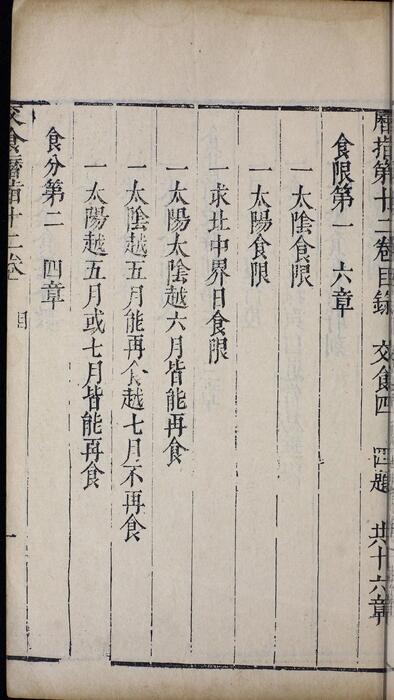 曆指第十二卷目錄 交食四 四題 共十六章
食限第一 六章
一太陰食限
一太陽食限
一求北中界日食限
一太陽太陰越六月皆能再食
一太陰越五月能再食越七月不再食
一太陽越五月或七月皆能再食
食分第二 四章
交食曆指十二卷 目 一